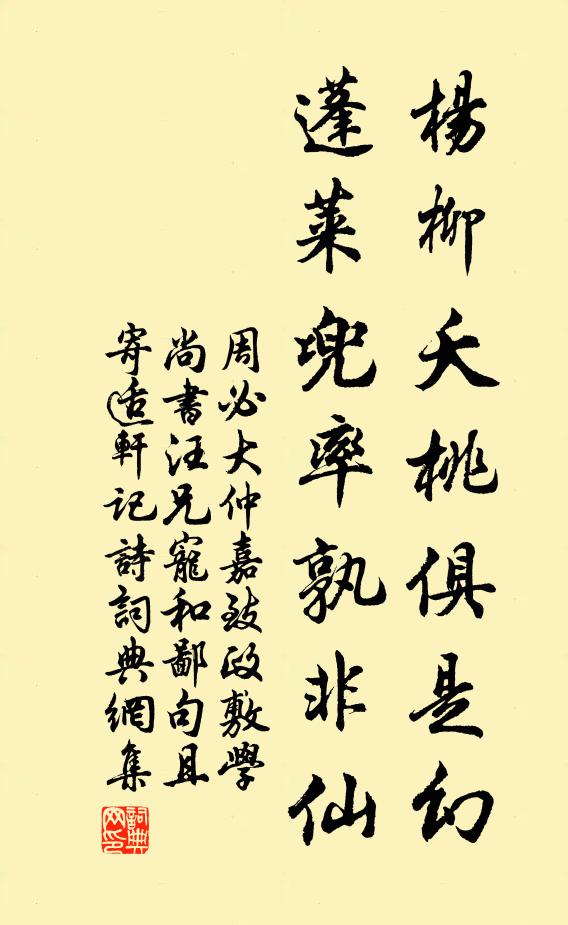 楊柳夭桃俱是幻
蓬萊兜率孰非仙
周必大仲嘉致政敷學
尚書汪兄寵和鄙句且
寄適軒記詩詞典網集
詞典
网印